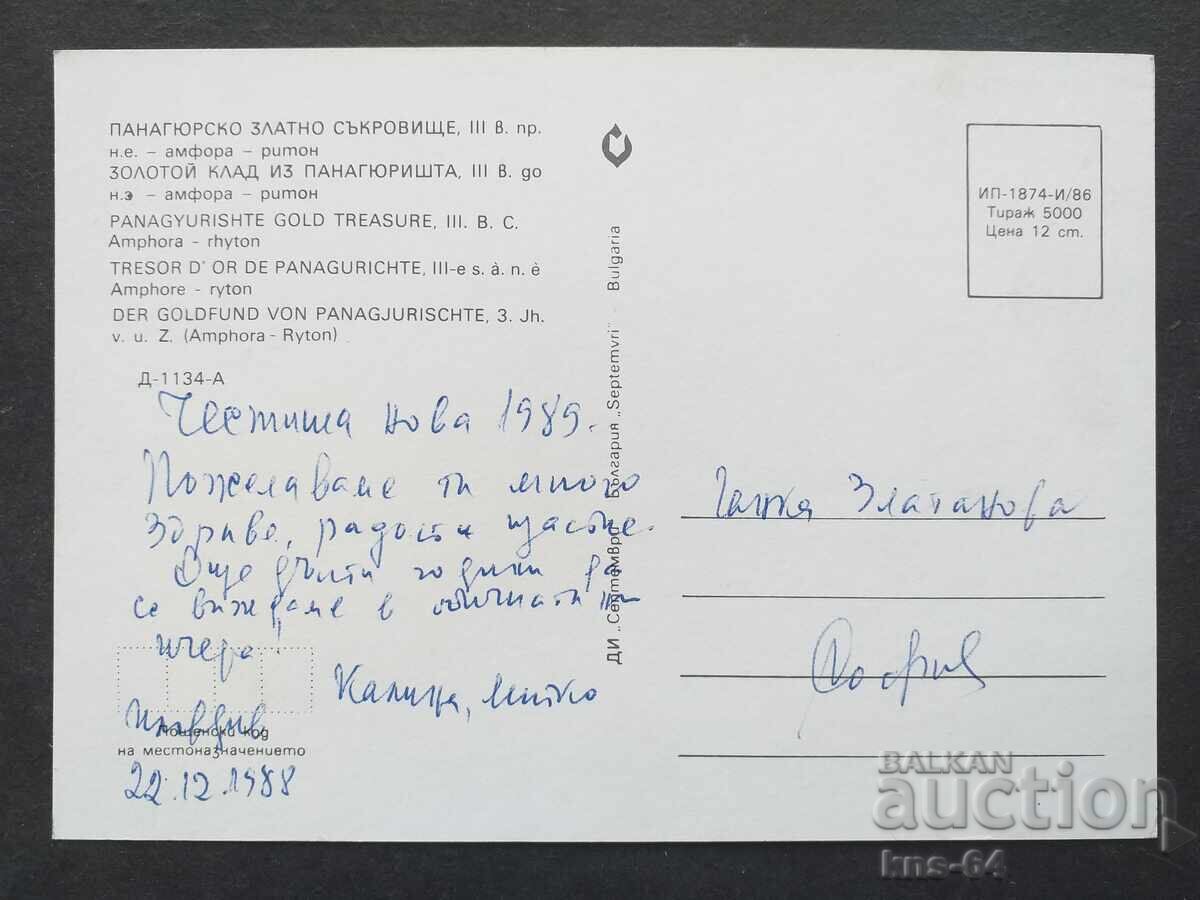 ПАНАГЮРСКО ЗЛАТНО СЪКРОВИЩЕ, III в. пр.
н.е. – амфора – ритон
ЗОЛОТОЙ КЛАД ИЗ ПАНАГЮРИШТА, III в. до
н.э – амфора – ритон
PANAGYURISHTE GOLD TREASURE, III. B. C.
Amphora - rhyton
TRESOR D' OR DE PANAGURICHTE, III-e s. à. n. è
Amphore - ryton
DER GOLDFUND VON PANAGJURISCHTE, 3. Jh.
v. u. Z. (Amphora - Ryton)
Д-1134-А
Честита нова 1989.
Пожелаваме ти много
здраве, радост и щастие.
Още дълги години да
се виждаме в обичната ни
Калина, Митко
Пловдив
Пощенски код
на местоназначението
22.12.1988
ДИ „Септември" България „Septemvri" - Bulgaria
ИП-1874-И/86
Тираж 5000
Цена 12 ст.
Златанова
София
BALKAN
auction
kns-64